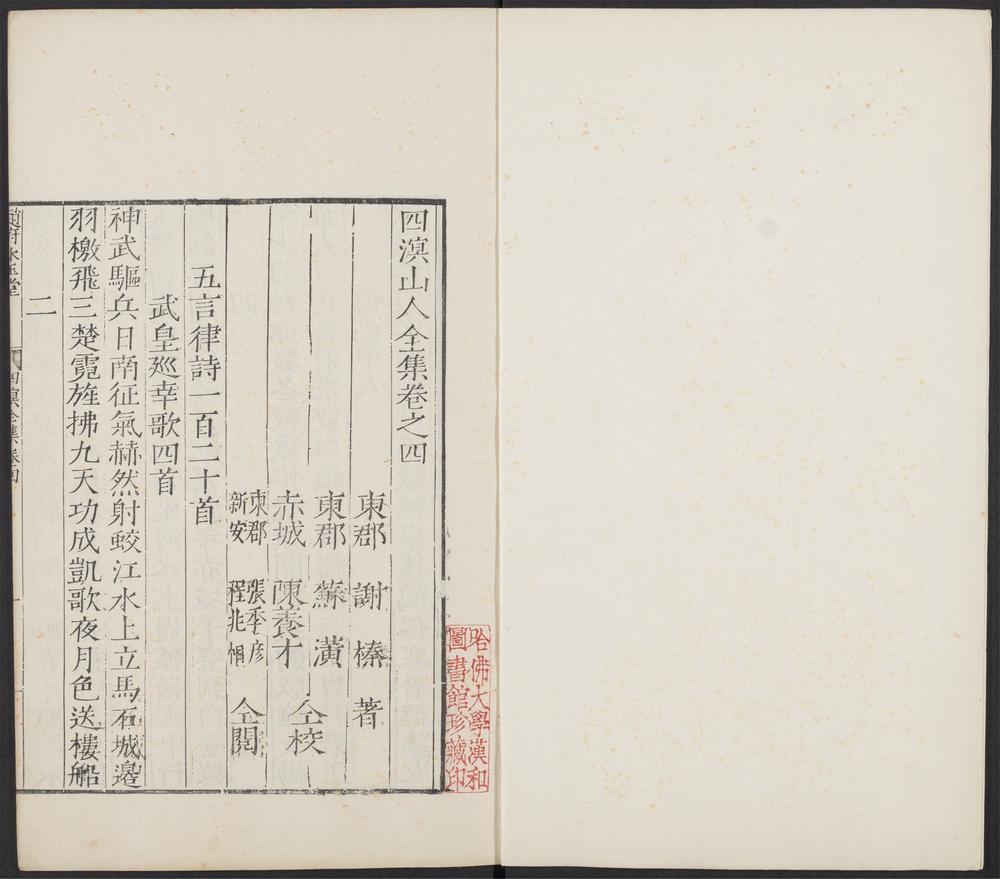 四溟山人全集卷之四
東郡 謝榛 著
東郡 蘇潢
赤城 陳養才 仝校
東郡 張季彦
新安 程兆相 仝閱
五言律詩一百二十首
武皇廵幸歌四首
神武驅兵日南征氣赫然射蛟江水上立馬石城邊
羽檄飛三楚霓旌拂九天功成凱歌夜月色送樓船
二
趙府冰玉堂
四溟全集卷四
哈佛大學漢和
圖書館珍藏印